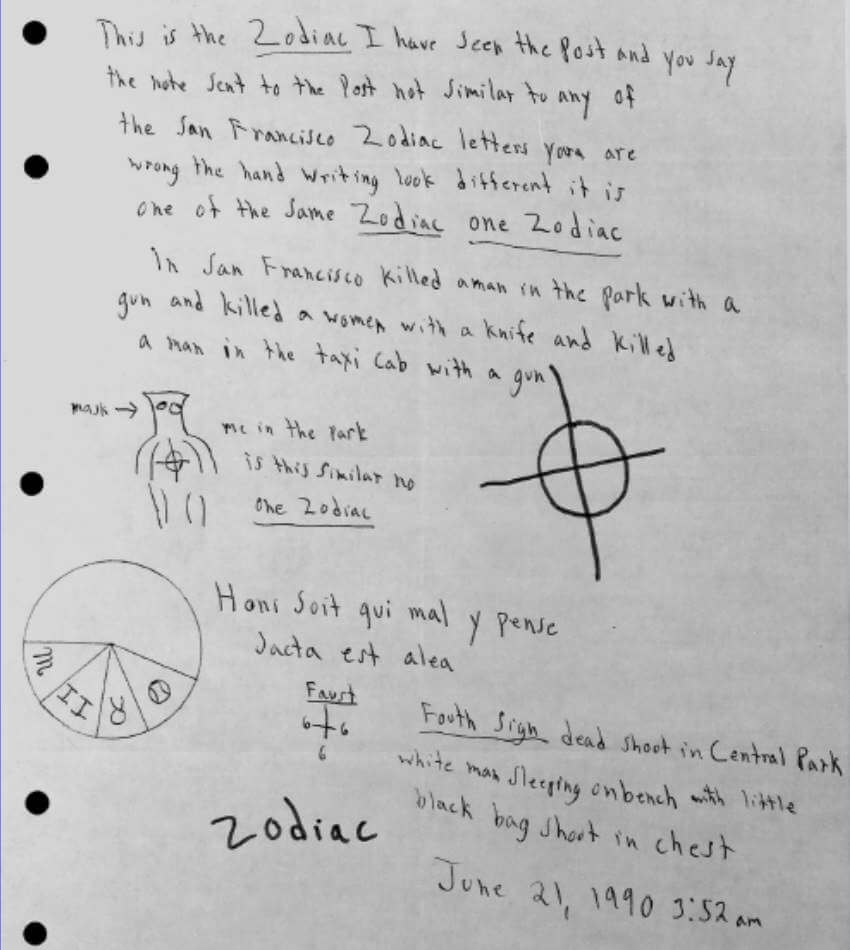 This is the Zodiac I have seen the Post and you say
the note sent to the Post not similar to any of
the San Francisco Zodiac letters you are
wrong the hand writing look different it is
one of the same Zodiac one Zodiac
In San Francisco killed a man in the park with a
gun and killed a women with a knife and killed
a man in the taxi cab with a gun
mask →
me in the park
is this similar no
one Zodiac
Honi soit qui mal y pense
Jacta est alea
♏ II ♉
Faust
6 6
6
Fouth Sign dead shoot in Central Park
white man sleeping on bench with little
black bag shoot in chest
Zodiac
June 21, 1990 3:52 am